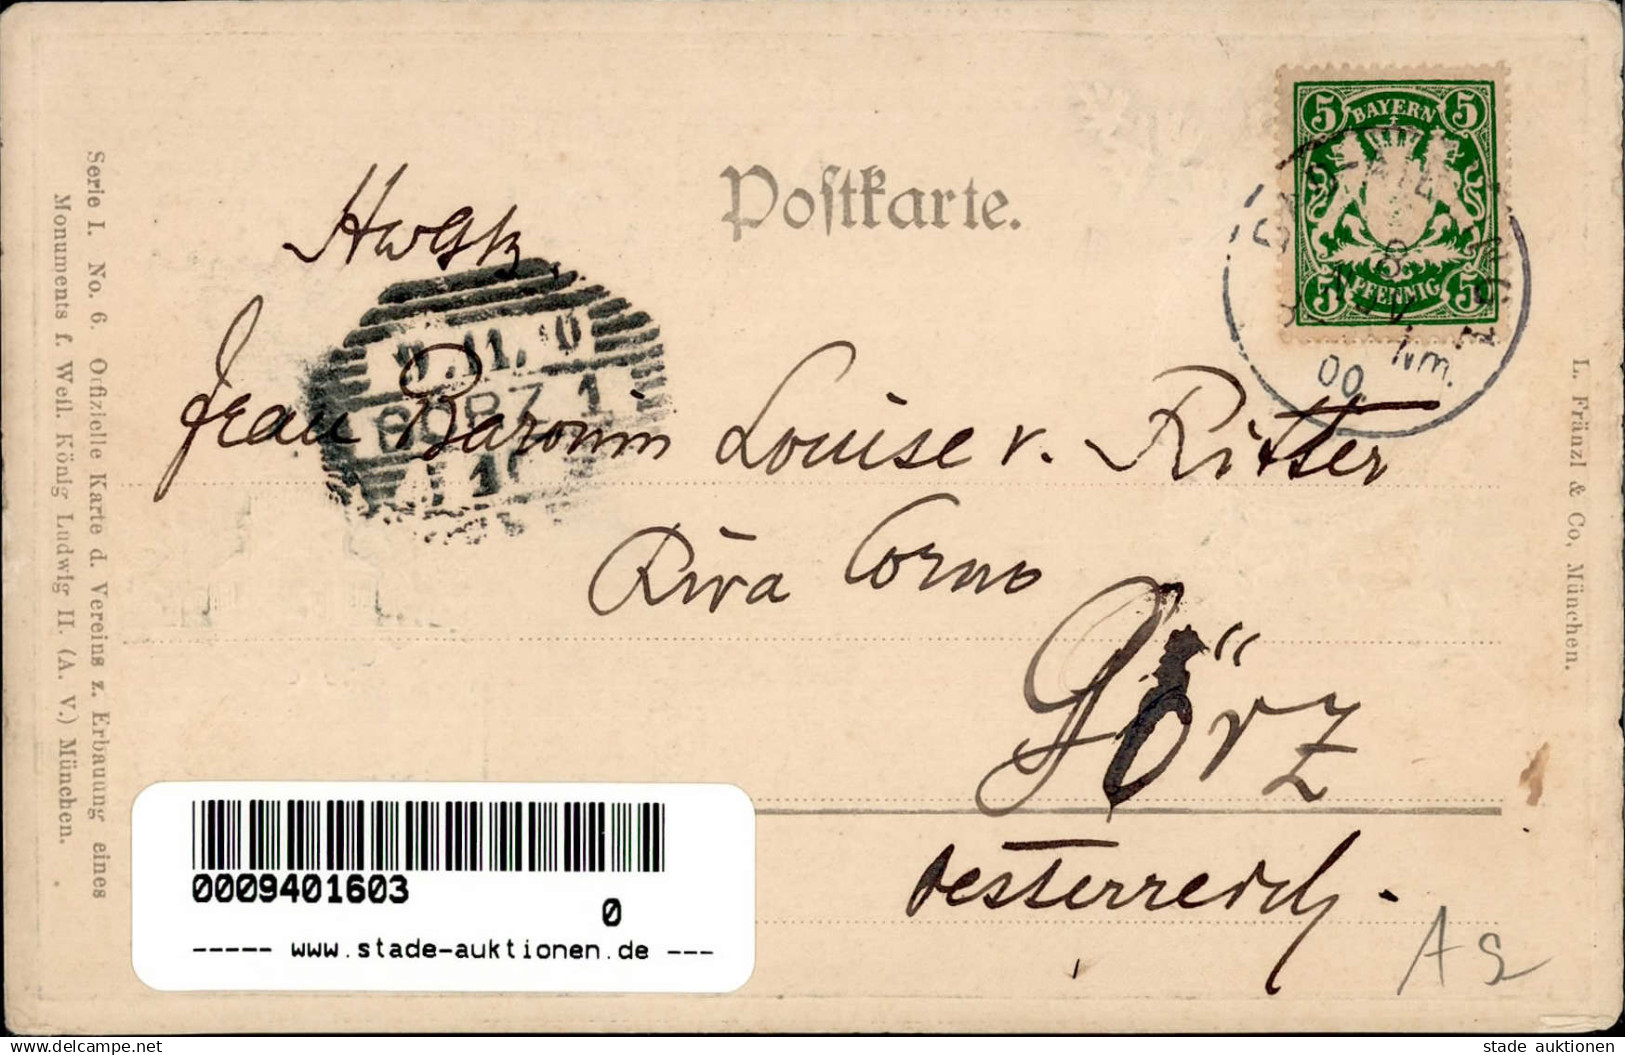 Postkarte.
BAYERN
5 5
5 PFENNIG 5
8 NOV.
Nm.
00
Hwgb.
.11. 0
GORZ 1
Frau Baronin Louise v. Ritter
Riva Corno
Görz
Oesterreich.
Serie I. No. 6. Offizielle Karte d. Vereins z. Erbauung eines
Monuments f. Weil. König Ludwig II. (A. V.) München.
L. Fränzl & Co, München.
0009401603
0
----- www.stade-auktionen.de ---
AS
stade auktionen
delcampe.net